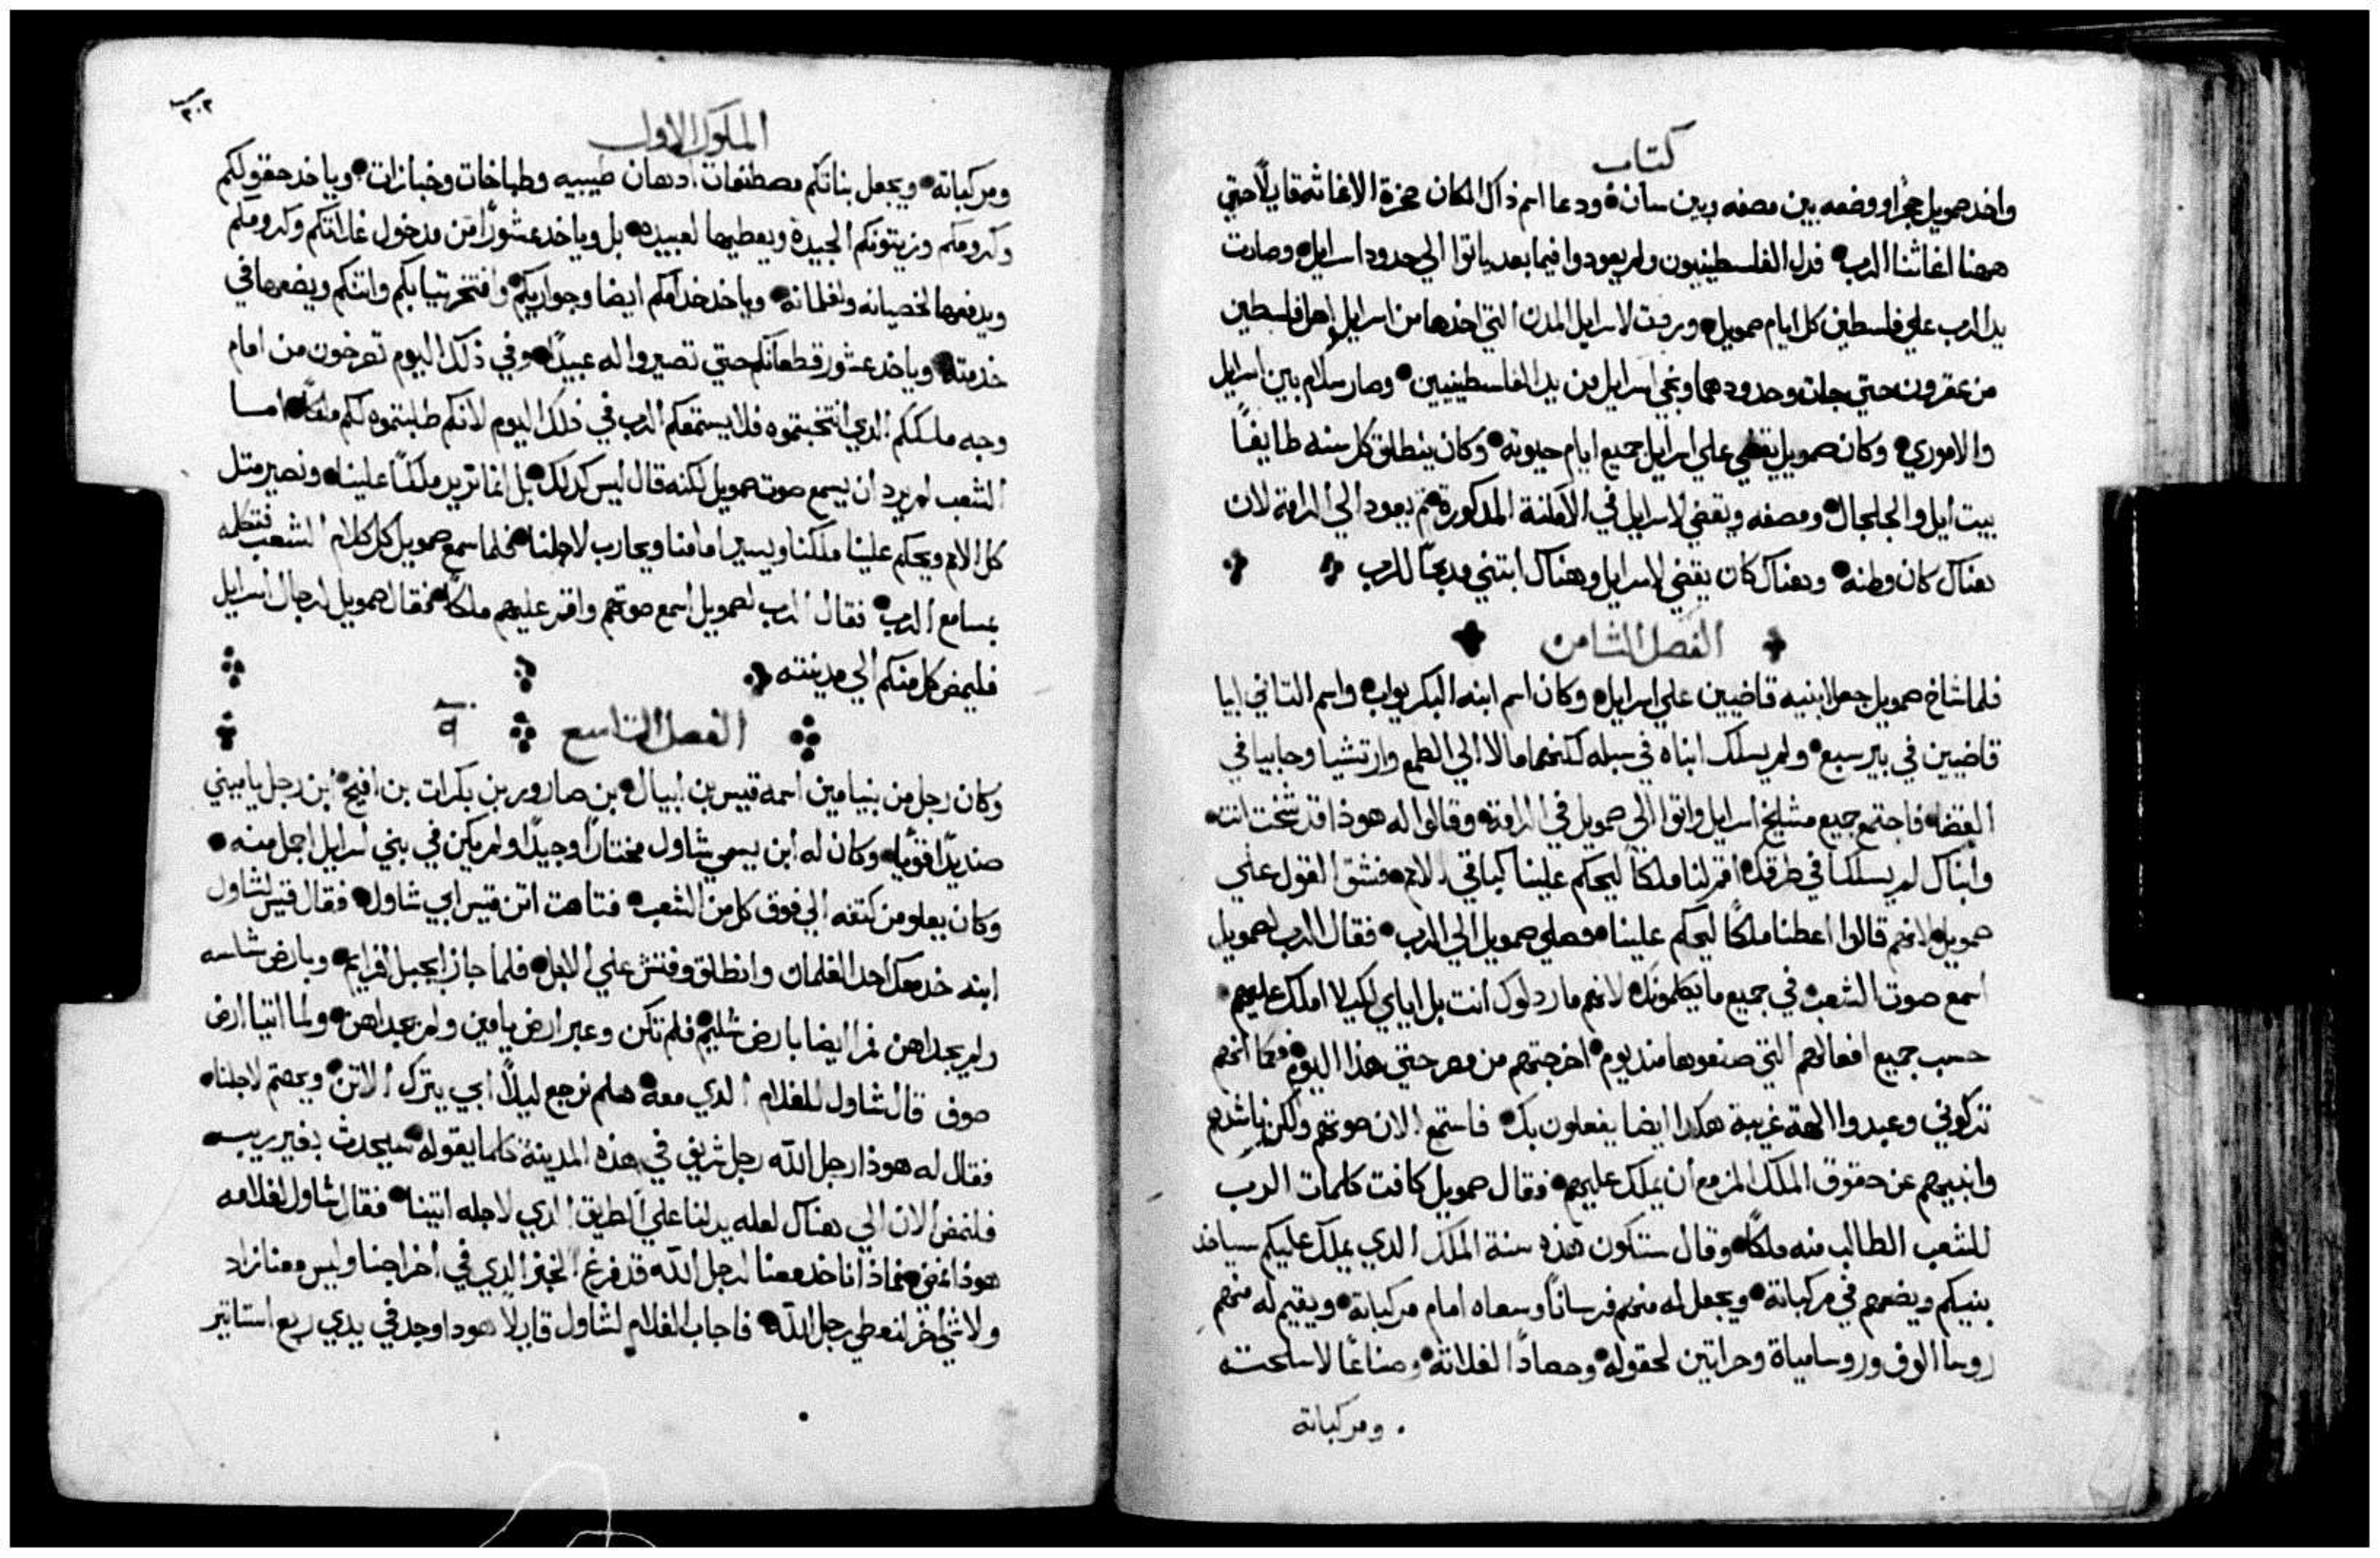 كتاب
واخد صمويل حجرًا ووضعه بين مصفه وبين سان ودعا اسم ذاك المكان حجرة الاغاثه قايلًا حتي
ههنا اغاثنا الرب فدل الفلسطينيون ولم يعودوا فيما بعد ياتوا الي حدود اسرايل وصارت
يد الرب علي فلسطين كل ايام صمويل وردت لاسرايل المدن التي اخدها من اسرايل اهل فلسطين
من عقرون حتي جات وحدودهما ونجي اسرايل من يد الفلسطينيين وصار سلام بين اسرايل
والاموري وكان صمويل يقضي علي اسرايل جميع ايام حيوته وكان ينطلق كل سنه طايفًا
بيت ايل والجلجال ومصفه ويقضي لاسرايل في الامكنة المدكورة ثم يعود الي الرامة لان
هناك كان وطنه وهناك كان يقضي لاسرايل وهناك ابتني مدبحًا للرب
الفصل الثامن
فلما شاخ صمويل جعل ابنيه قاضيين علي اسرايل وكان اسم ابنه البكر يواب واسم التاني ابيا
قاضيين في بير سبع ولم يسلك ابناه في سبله لكنهما مالا الي الطمع وارتشيا وحابيا في
القضا فاجتمع جميع مشايخ اسرايل واتوا الي صمويل في الرامة وقالوا له هوذا قد شخت انت
وابناك لم يسلكا في طرقك اقم لنا ملكًا ليحكم علينا كباقي الامم فشق القول علي
صمويل لانهم قالوا اعطنا ملكًا ليحكم علينا فصلي صمويل الي الرب فقال الرب لصمويل
اسمع صوت الشعب في جميع ما يكلمونك لانهم ما ردلوك انت بل اياي لكيلا املك عليهم
حسب جميع افعالهم التي صنعوها مند يوم اخرجتهم من مصر حتي هذا اليوم فكما انهم
تركوني وعبدوا الهة غريبة هكدا ايضا يفعلون بك فاستمع الان صوتهم ولكن ناشدهم
وانبيهم عن حقوق الملك المزمع ان يملك عليهم فقال صمويل كافت كلمات الرب
للشعب الطالب منه ملكًا وقال ستكون هذه سنة الملك الدي يملك عليكم سياخد
بنيكم ويضعهم في مركباته ويجعل له منهم فرسانًا وسعاه امام مركباته ويقيم له منهم
روسا الوف وروسا مياة وحراتين لحقوله وحصادًا لغلاته وصناعًا لاسلحته
ومركباته
٣٠٢
الملوك الاول
ومركباته ويجعل بناتكم مصطنعات ادهان طيبيه وطباخات وخبازات وياخد حقولكم
وكرومكم وزيتونكم الجيدة ويعطيها لعبيده بل وياخد عشورًا من مدخول غلاتكم وكرومكم
ويدفعها لخصيانه ولغلمانه وياخد خدامكم ايضا وجواريكم وافتخر تيابكم واتنكم ويضعها في
خدمته وياخد عشور قطعانكم حتي تصيروا له عبيدًا وفي ذلك اليوم تصرخون من امام
وجه ملككم الدي انتخبتموه فلا يستمعكم الرب في ذلك اليوم لانكم طلبتموه لكم ملكًا اما
الشعب لم يرد ان يسمع صوت صمويل لكنه قال ليس كدلك بل انما تريد ملكًا علينا ونصير متل
كل الامم ويحكم علينا ملكنا ويسير امامنا ويحارب لاجلنا فلما سمع صمويل كل كلام الشعب فتكلمه
بمسامع الرب فقال الرب لصمويل اسمع صوتهم واقم عليهم ملكًا فقال صمويل لرجال اسرايل
فليمض كل منكم الي مدينته
الفصل التاسع ٩
وكان رجل من بنيامين اسمه قيس بن ابيال بن صارور بن بكرات بن افيح ابن رجل يا ميني
صنديدًا قويًا وكان له ابن يسمي شاول مختارًا وجيدًا ولم يكن في بني اسرايل اجمل منه
وكان يعلو من كتفه الي فوق كل من الشعب فتاهت اتن قيس ابي شاول فقال قيس لشاول
ابنه خد معك احد الغلمان وانطلق وفتش علي الابل فلما جاز ابجبل افرايم وبارض شاسه
ولم يجداهن مرا ايضا بارض شليم فلم تكن وعبر ارض يامين ولم يجداهن ولما اتيا ارض
صوف قال شاول للغلام الدي معه هلم نرجع ليلًا ابي يترك الاتن ويهتم لاجلنا
فقال له هوذا رجل الله رجل شريف في هذه المدينة كلما يقوله سيحدث بغير ريب
فلنمض الان الي هناك لعله يدلنا علي الطريق الدي لاجله اتينا فقال شاول لغلامه
هوذا نمضي فماذا ناخد معنا لرجل الله قد فرغ الخبز الدي في اخراجنا وليس معنا زاد
ولا شي اخر لنعطي رجل الله فاجاب الغلام لشاول قايلًا هودا وجد في يدي ربع استاتير